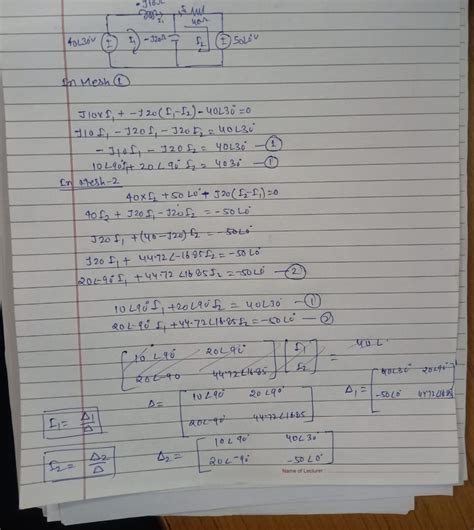 J10Ω
40Ω
40∠30°V
I1
-J20Ω
I2
50∠0°V
In Mesh ①
J10×I1 + -J20(I1-I2) - 40∠30° = 0
J10I1 - J20I1 - J20I2 = 40∠30°
-J10I1 - J20I2 = 40∠30° — ①
10∠90°I1 + 20∠90°I2 = 40 30° — ①
In Mesh-2
40×I2 + 50∠0° + J20(I2-I1) = 0
40I2 + J20I1 - J20I2 = -50∠0°
J20I1 + (40-J20)I2 = -50∠0°
J20I1 + 44.72∠-16.85 = -50∠0°
20∠-90°I1 + 44.72∠16.85I2 = -50∠0° — ②
10∠90°I1 + 20∠90°I2 = 40∠30° — ①
20∠-90°I1 + 44.72∠16.85I2 = -50∠0° — ②
10∠90° 20∠90° I1 = 40∠
20∠-90 44.72∠16.85 I2
I1 = Δ1/Δ
Δ = 10∠90° 20∠90°
20∠-90° 44.72∠16.85
Δ1 = 40∠30° 20∠90°
-50∠0° 44.72∠16.85
I2 = Δ2/Δ
Δ2 = 10∠90° 40∠30°
20∠-90° -50∠0°
Name of Lecturer